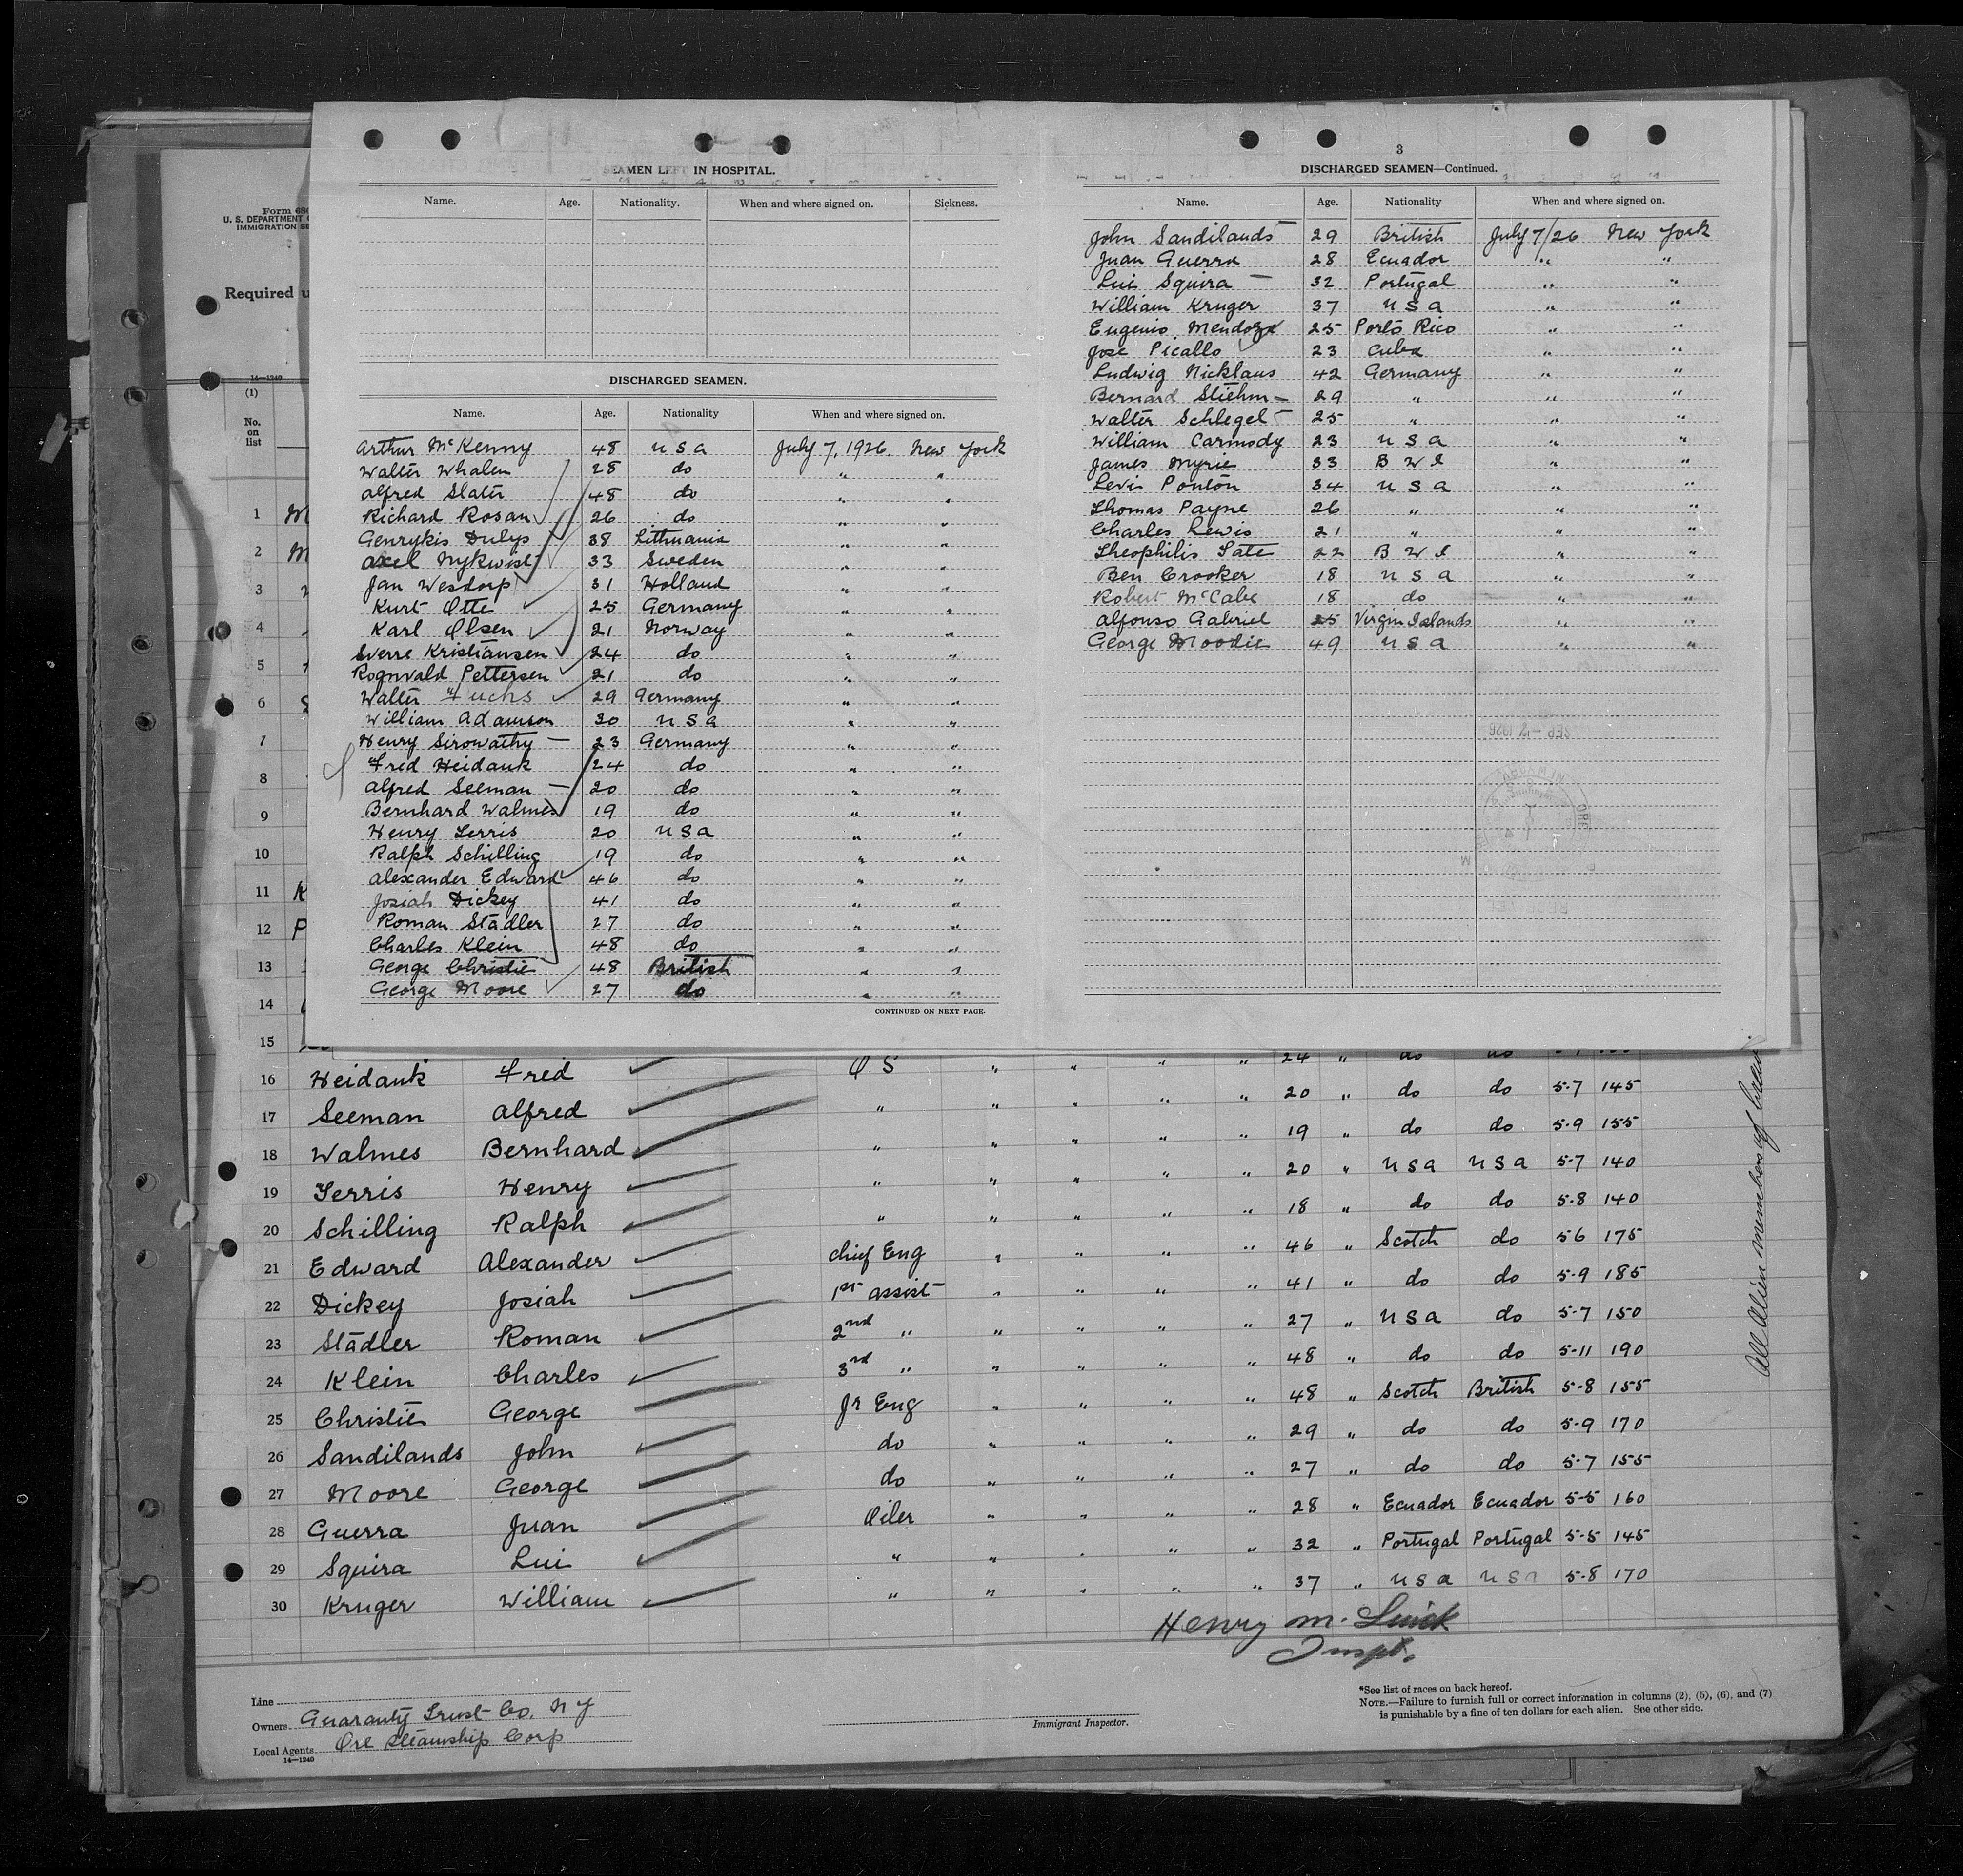 Form 680
U. S. DEPARTMENT
IMMIGRATION SE
Required u
14—1240
(1)
No.
on
list
SEAMEN LEFT IN HOSPITAL.
Name. Age. Nationality. When and where signed on. Sickness.
DISCHARGED SEAMEN.
Name. Age. Nationality When and where signed on.
Arthur McKenny 48 USA July 7, 1926. New York
Walter Whalen 28 do " "
Alfred Slater 48 do " "
Richard Rosan 26 do " "
Genrykis Dulys 38 Lithuania " "
Axel Nykwist 33 Sweden " "
Jan Wesdorp 31 Holland " "
Kurt Otte 25 Germany " "
Karl Olsen 21 Norway " "
Sverre Kristiansen 24 do " "
Rognvald Pettersen 21 do " "
Walter Fuchs 29 Germany " "
William Adamson 30 USA " "
Henry Sirowathy 23 Germany " "
Fred Heidank 24 do " "
Alfred Seeman 20 do " "
Bernhard Walmes 19 do " "
Henry Ferris 20 USA " "
Ralph Schilling 19 do " "
Alexander Edward 46 do " "
Josiah Dickey 41 do " "
Roman Stadler 27 do " "
Charles Klein 48 do " "
George Christie 48 British " "
George Moore 27 do " "
CONTINUED ON NEXT PAGE.
3
DISCHARGED SEAMEN—Continued.
Name. Age. Nationality When and where signed on.
John Sandilands 29 British July 7/26 New York
Juan Guerra 28 Ecuador " "
Lui Squira 32 Portugal " "
William Kruger 37 USA " "
Eugenio Mendoza 25 Porto Rico " "
Jose Picallo 23 Cuba " "
Ludwig Nicklaus 42 Germany " "
Bernard Stiehm 29 " " "
Walter Schlegel 25 " " "
William Carmody 23 USA " "
James Myrie 33 BWI " "
Levis Ponton 34 USA " "
Thomas Payne 26 " " "
Charles Lewis 21 " " "
Theophilis Tate 22 BWI " "
Ben Crooker 18 USA " "
Robert McCabe 18 do " "
Alfonso Gabriel 25 Virgin Islands " "
George Moodie 49 USA " "
1 M
2 M
3
4
5
6 S
7
8
9
10
11 K
12 P
13
14
15
16 Heidank Fred OS " " " " 24 " do do
17 Seeman Alfred " " " " " 20 " do do 5-7 145
18 Walmes Bernhard " " " " " 19 " do do 5-9 155
19 Ferris Henry " " " " " 20 " USA USA 5-7 140
20 Schilling Ralph " " " " " 18 " do do 5-8 140
21 Edward Alexander Chief Eng " " " " 46 " Scotch do 5-6 175
22 Dickey Josiah 1st assist " " " " 41 " do do 5-9 185
23 Stadler Roman 2nd " " " " " 27 " USA do 5-7 150
24 Klein Charles 3rd " " " " " 48 " do do 5-11 190
25 Christie George Jr Eng " " " " 48 " Scotch British 5-8 155
26 Sandilands John do " " " " 29 " do do 5-9 170
27 Moore George do " " " " 27 " do do 5-7 155
28 Guerra Juan Oiler " " " " 28 " Ecuador Ecuador 5-5 160
29 Squira Lui " " " " " 32 " Portugal Portugal 5-5 145
30 Kruger William " " " " " 37 " USA USA 5-8 170
All Alien members of crew
Henry M. Luick
Inspt.
Line
Owners Guaranty Trust Co. NY
Local Agents Ore Steamship Corp
14—1240
Immigrant Inspector.
*See list of races on back hereof.
NOTE.—Failure to furnish full or correct information in columns (2), (5), (6), and (7)
is punishable by a fine of ten dollars for each alien. See other side.